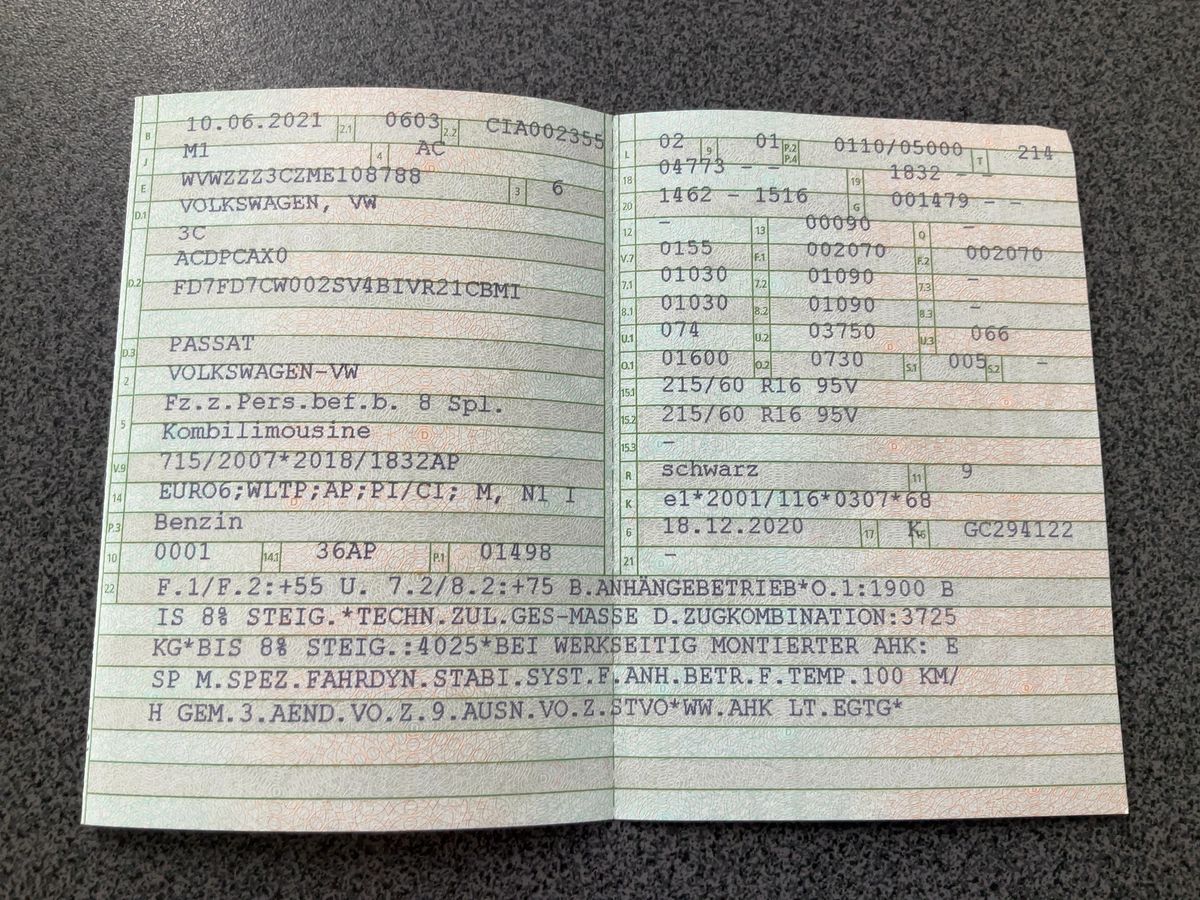 B 10.06.2021 2.1 0603 2.2 CIA002355
J M1 4 AC
E WVWZZZ3CZME108788 3 6
D.1 VOLKSWAGEN, VW
3C
D.2 ACDPCAX0
FD7FD7CW002SV4BIVR21CBMI
D.3 PASSAT
2 VOLKSWAGEN-VW
5 Fz.z.Pers.bef.b. 8 Spl.
Kombilimousine
V.9 715/2007*2018/1832AP
14 EURO6;WLTP;AP;PI/CI; M, N1 I
P.3 Benzin
10 0001 14.1 36AP P.1 01498
L 02 9 01 P.2 P.4 0110/05000 T 214
18 04773 - - 19 1832 - -
20 1462 - 1516 G 001479 - -
12 - 13 00090 Q -
V.7 0155 F.1 002070 F.2 002070
7.1 01030 7.2 01090 7.3 -
8.1 01030 8.2 01090 8.3 -
U.1 074 U.2 03750 U.3 066
O.1 01600 O.2 0730 S.1 005 S.2 -
15.1 215/60 R16 95V
15.2 215/60 R16 95V
15.3 -
R schwarz 11 9
K e1*2001/116*0307*68
6 18.12.2020 17 K 16 GC294122
21 -
22 F.1/F.2:+55 U. 7.2/8.2:+75 B.ANHÄNGEBETRIEB*O.1:1900 B
IS 8% STEIG.*TECHN.ZUL.GES-MASSE D.ZUGKOMBINATION:3725
KG*BIS 8% STEIG.:4025*BEI WERKSEITIG MONTIERTER AHK: E
SP M.SPEZ.FAHRDYN.STABI.SYST.F.ANH.BETR.F.TEMP.100 KM/
H GEM.3.AEND.VO.Z.9.AUSN.VO.Z.STVO*WW.AHK LT.EGTG*